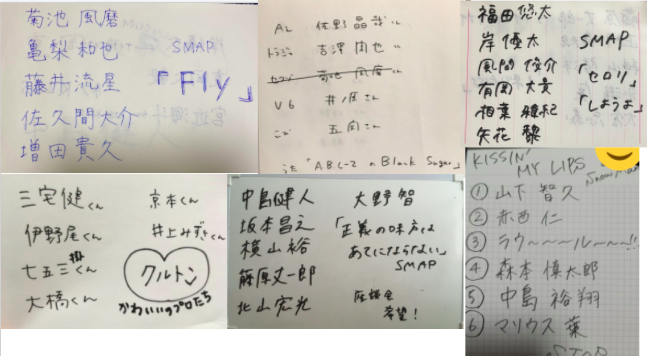 菊池 風磨
亀梨 和也 SMAP
藤井 流星 「Fly」
佐久間大介
増田貴久
A.L 佐野 晶哉
トラジャ 吉澤 閑也
セクゾ 菊池 風磨
V6 井ノ原さん
五関さん
うた「A.B.C-Z の Black Sugar」
福田悠太
岸 優太 SMAP
風間俊介 「セロリ」
有岡 大貴 「しようよ」
相葉 雅紀
矢花 黎
三宅健くん 京本くん
伊野尾くん 井上みずきくん
七五三掛くん クルトン
大橋くん かわいいのプロたち
中島健人 大野智
坂本昌之 「正義の味方は
横山裕 あてにならない」
藤原丈一郎 SMAP
北山宏光 座談会
希望!
KISSIN'
MY LIPS
Snow Man
①山下 智久
②赤西 仁
③ラウ〜〜〜ル〜〜〜!!
④森本 慎太郎
⑤中島 裕翔
⑥マリウス 葉